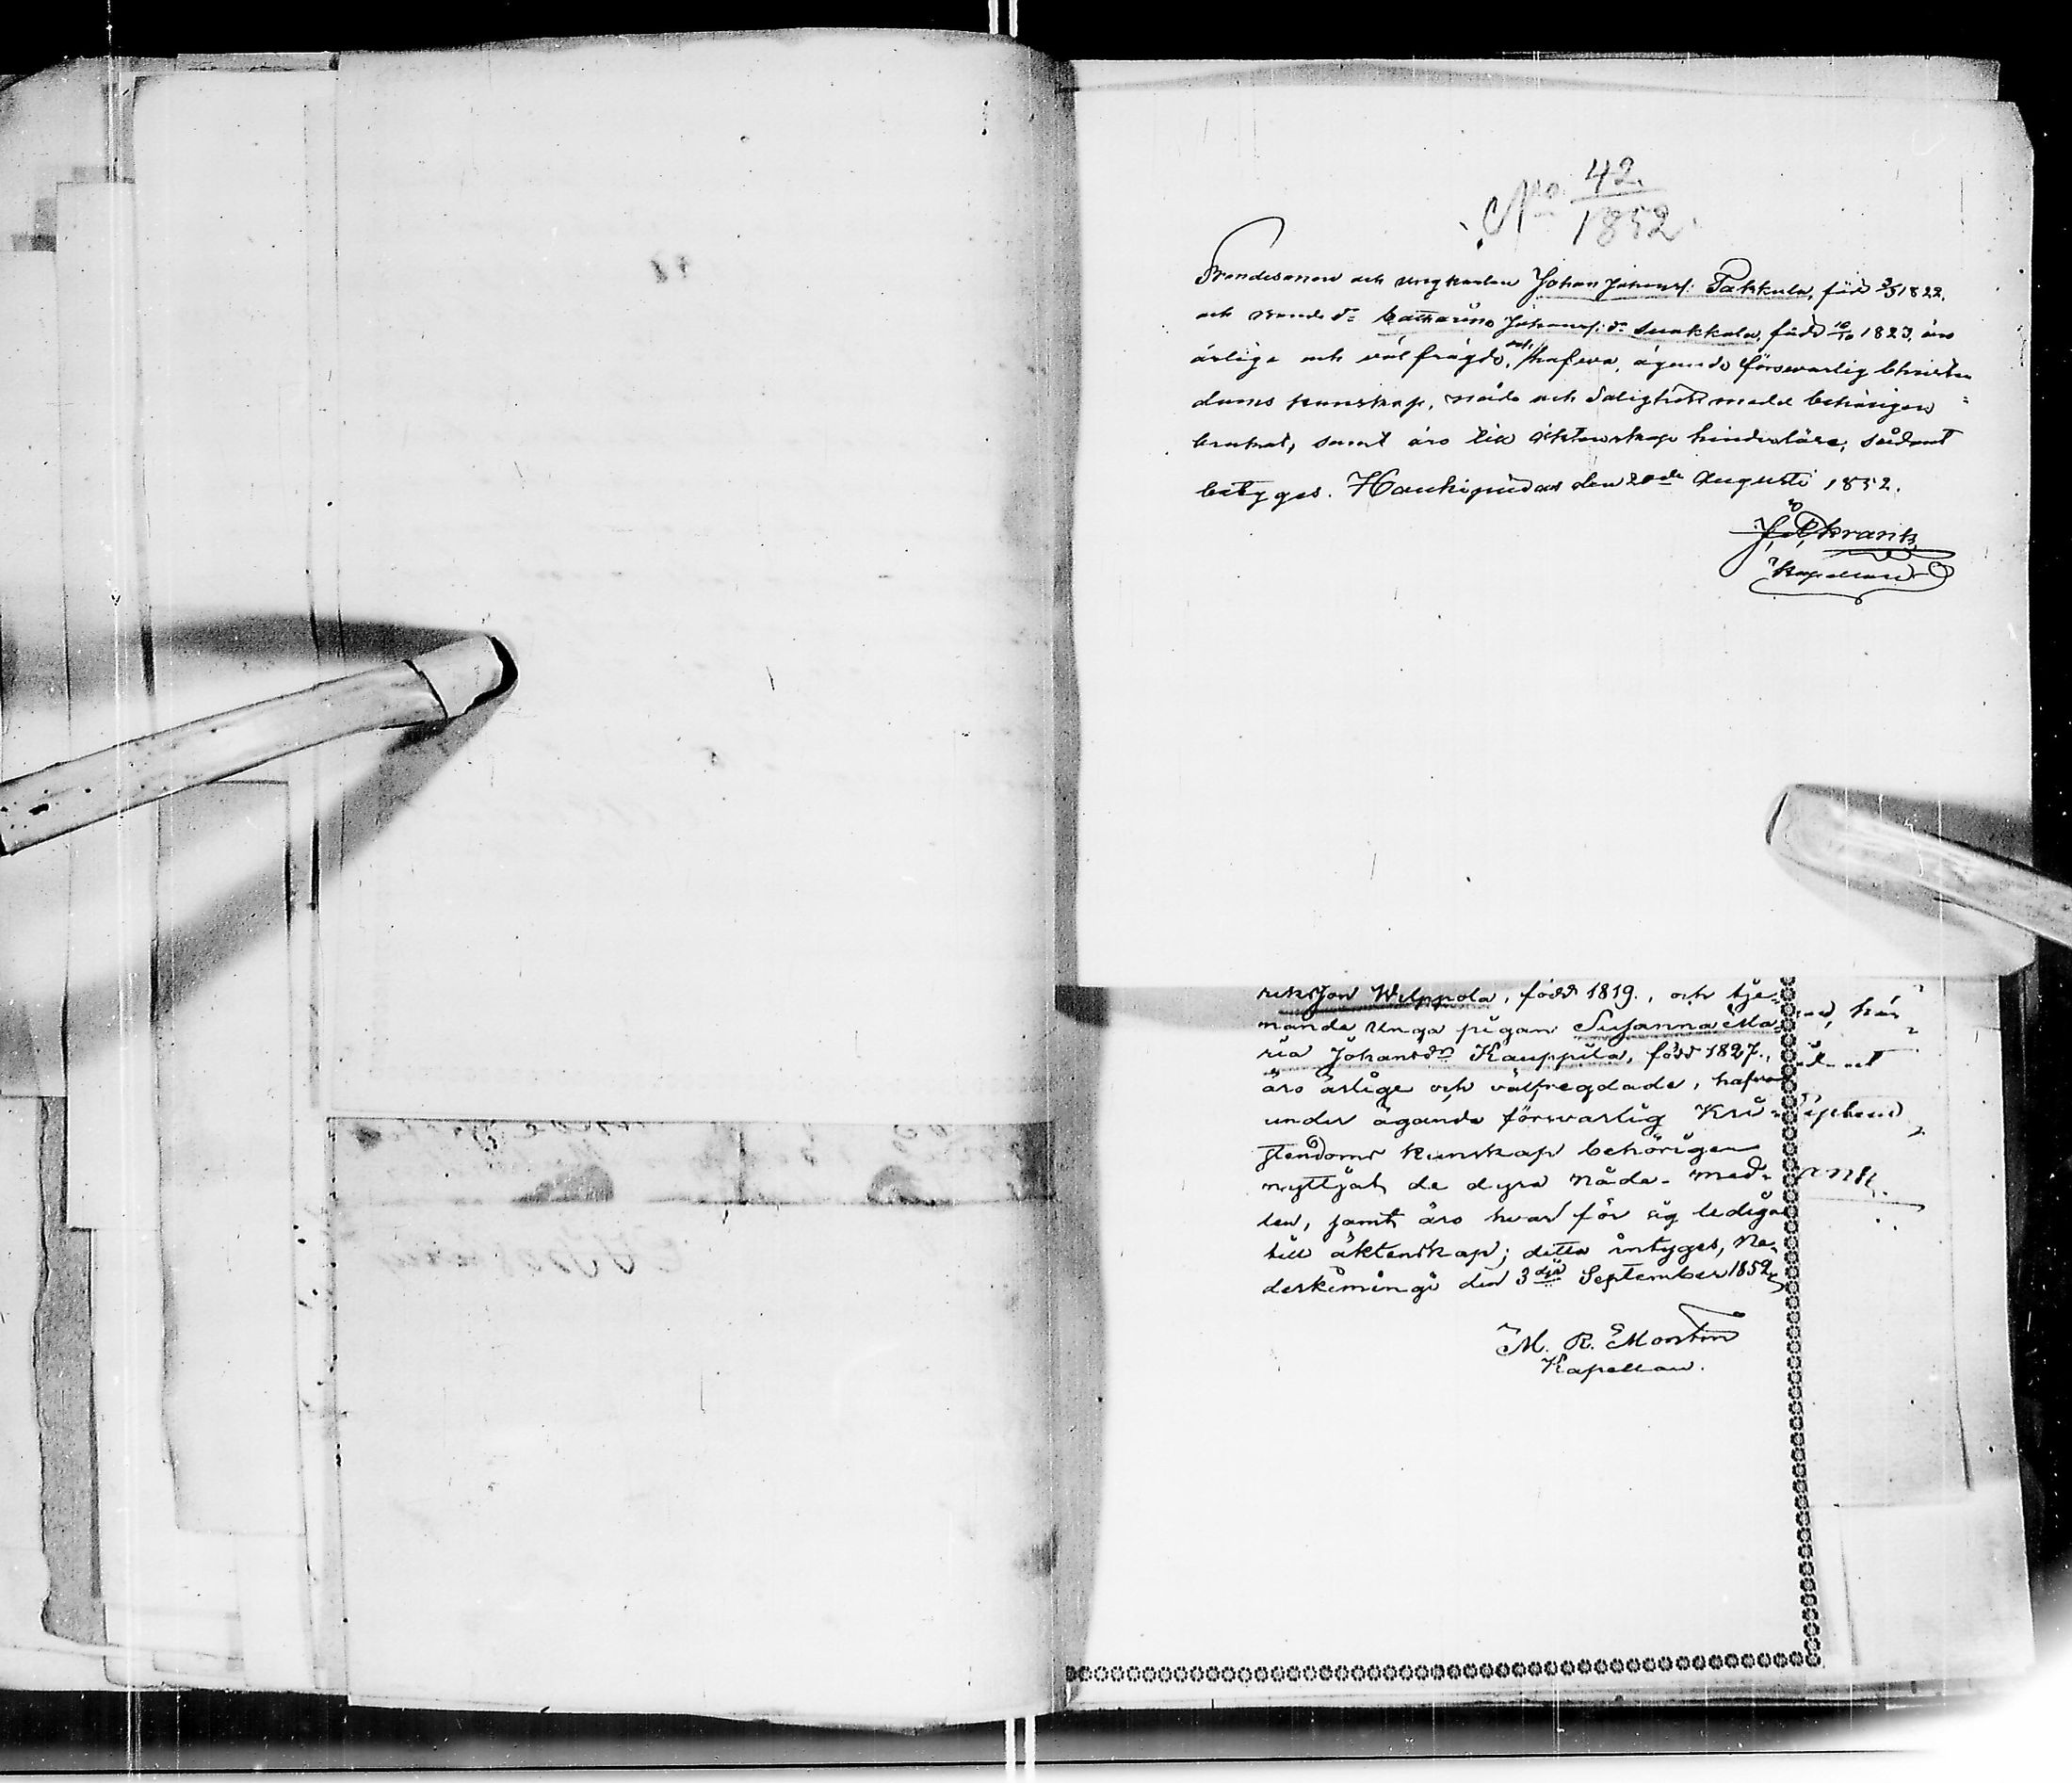 No 42.
1852
Bondesonen och ungkarlen Johan Johanss: Takkula, född 3/5 1822.
och bonde dr Catharina Johanss: dr Suakkola, född 10/10 1823, äro
ärlige och välfrägdade, och hafva, ägande försvarlig Christen
doms kunskap, nåde och Salighets medel behörigen
brukat, samt äro till äktenskap hinderlöse; sådant
betyges. Haukipudas den 20de Augusti 1852.
Kapellan
riksson Wilppola, född 1819., och tje-
nande unga pigan Susanna Ma-
ria Johansdr Kauppila, född 1827.,
äro ärlige och välfregdade, hafva
under ägande försvarlig Kri-
stendoms kunskap behörigen
nyttjat de dyra nåde- med-
len, samt äro hvar för sig lediga
till äktenskap; detta intygas, Ne-
derkiminge den 3dje September 1852,
M. R.
Kapellan.